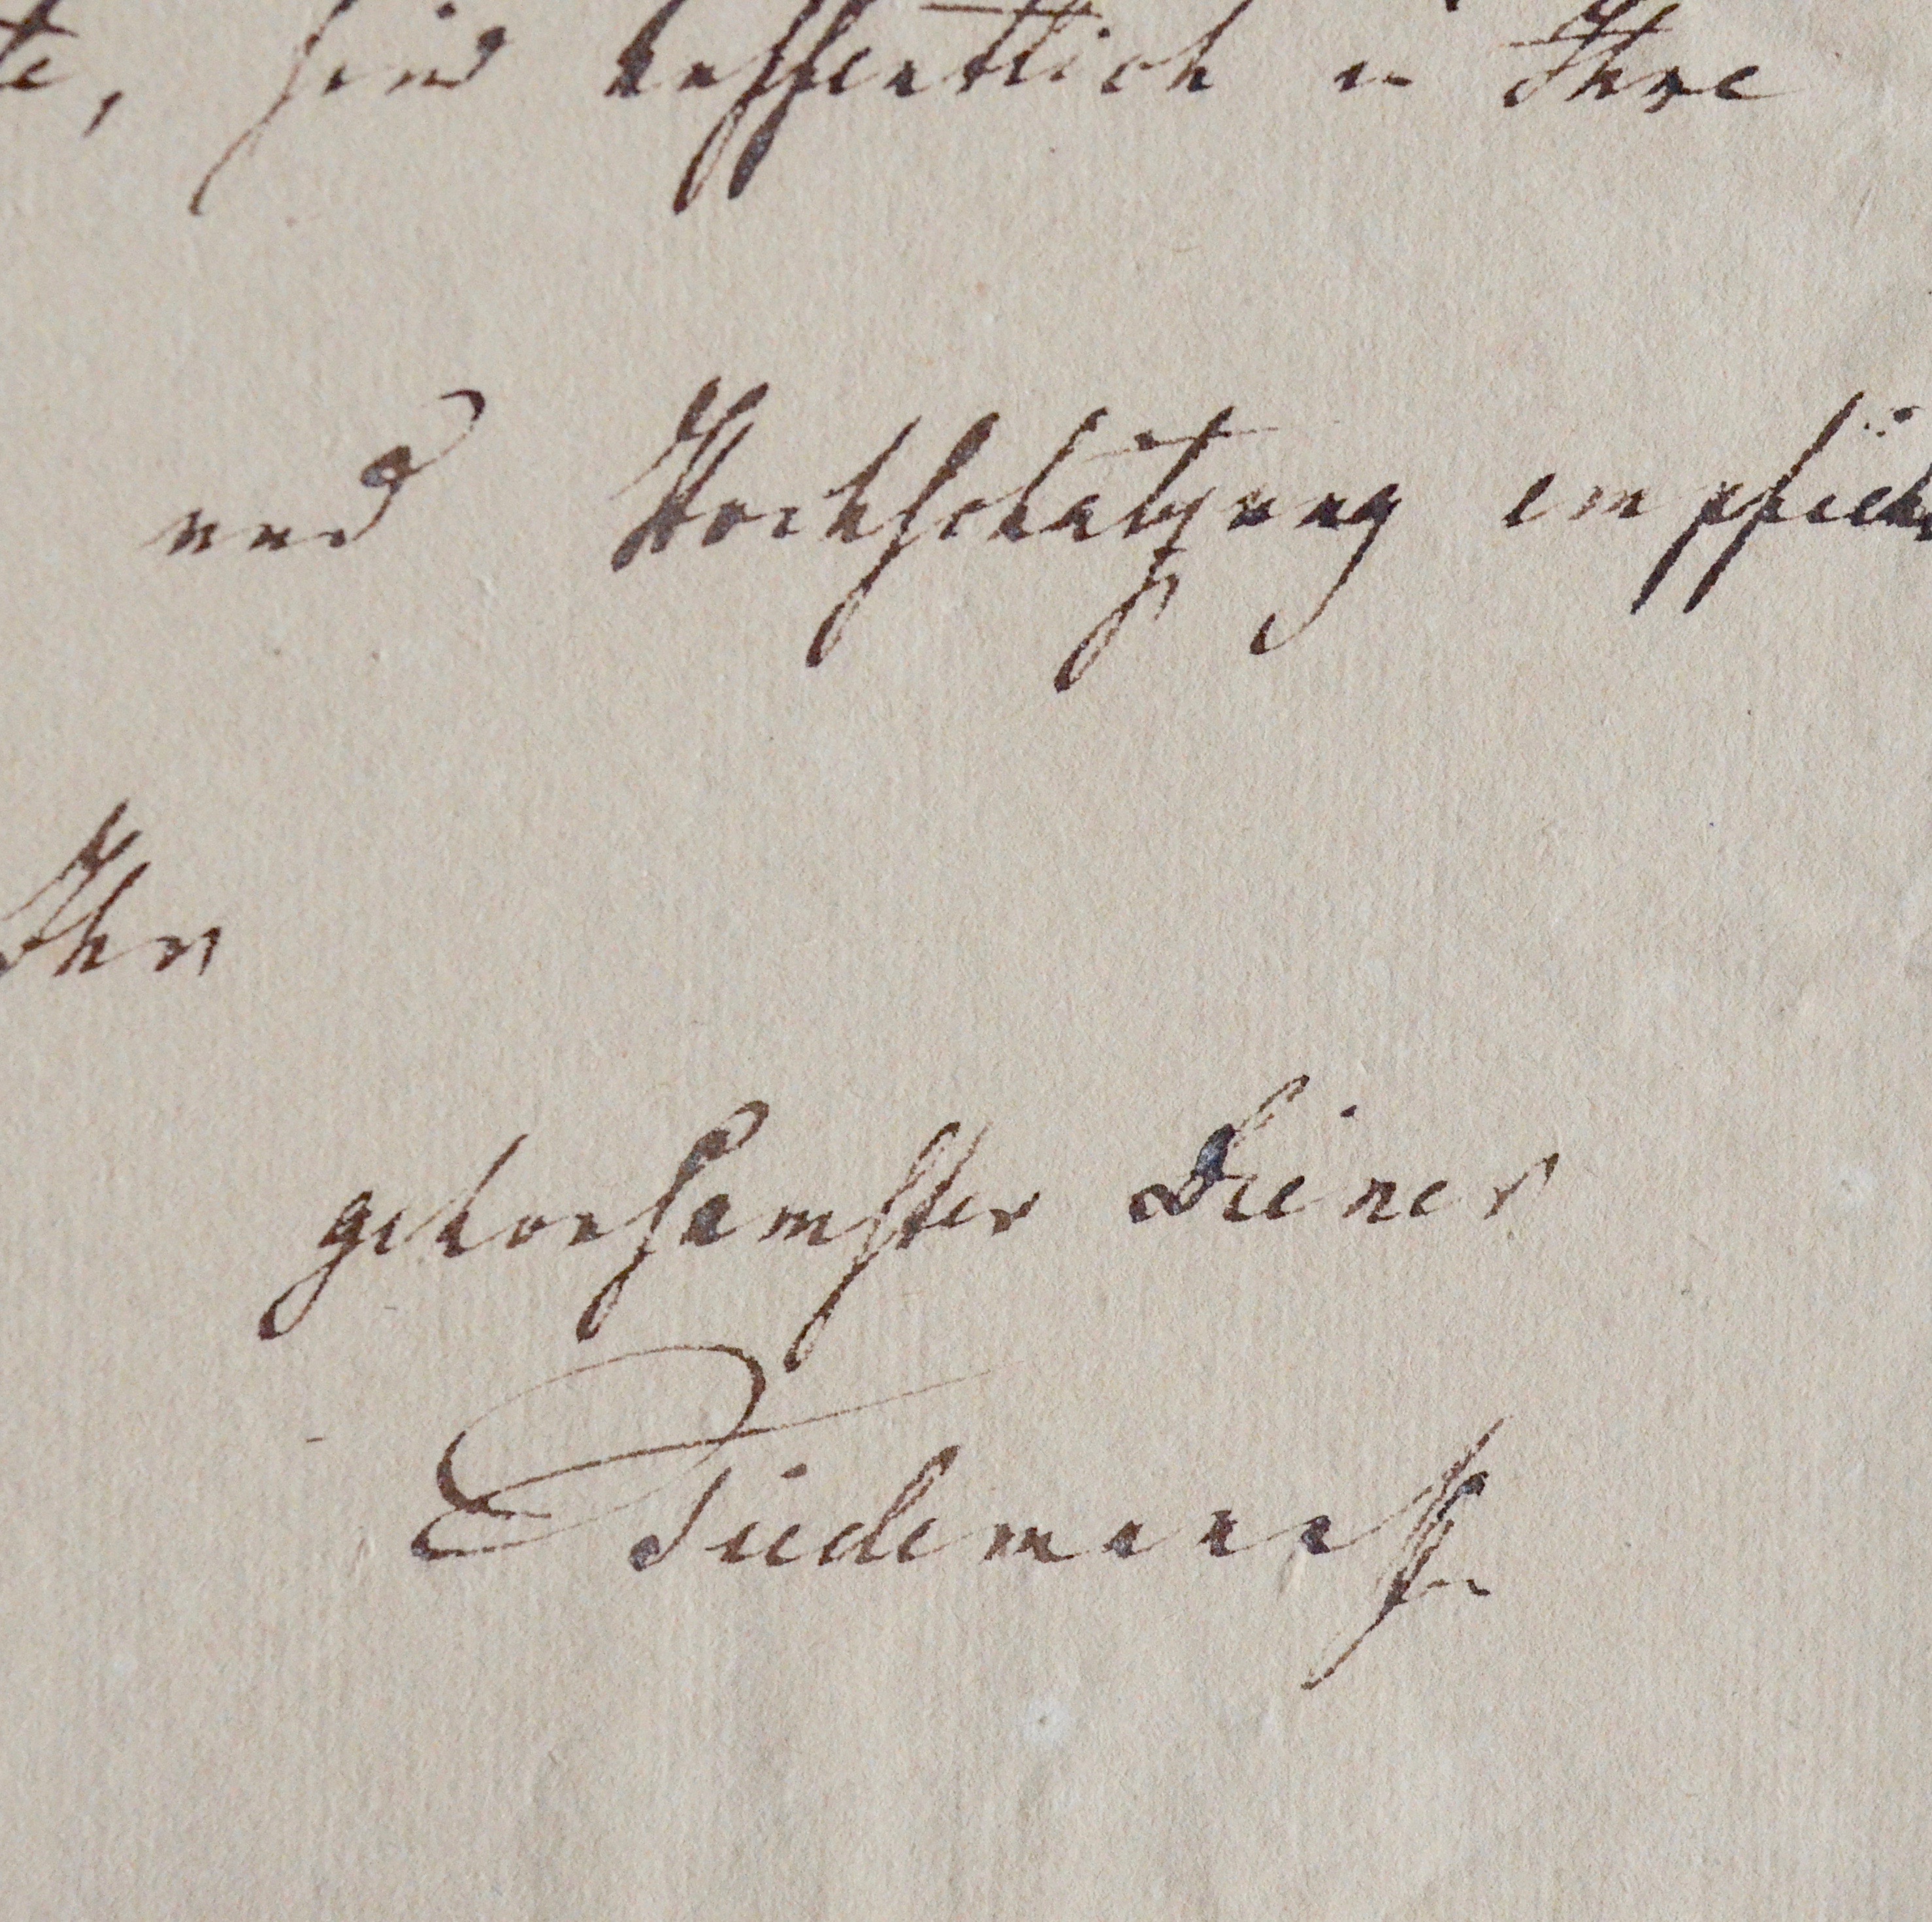 te, sind hoffentlich in Ihre
und Hochschätzung empfieh
Ihr
gehorsamster Diener
Tiedemann